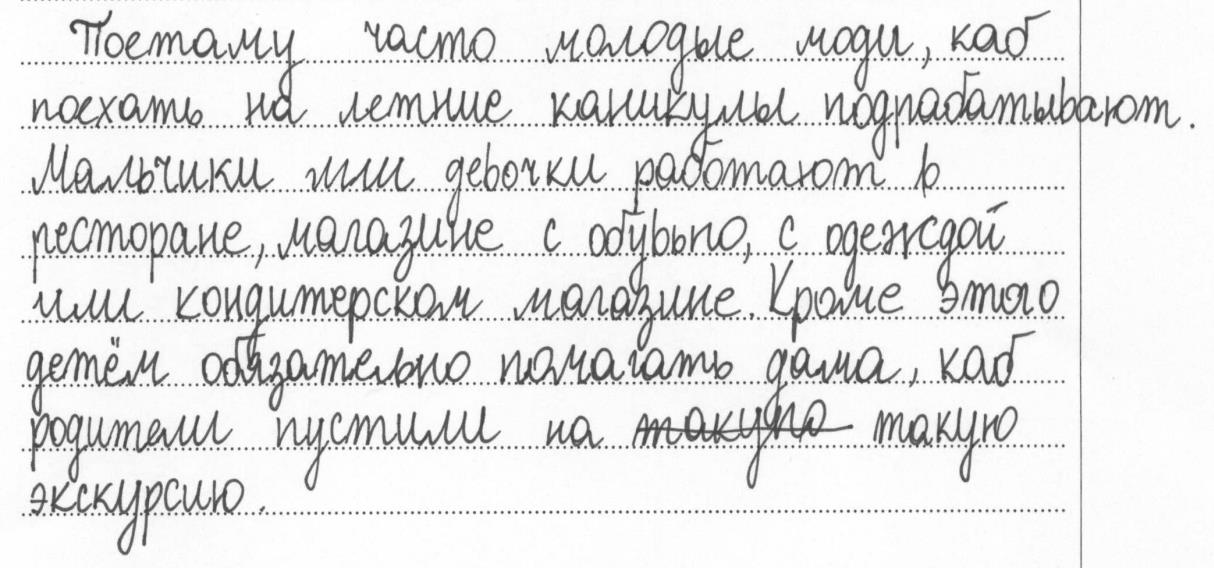 Поетаму часто молодые люди, каб
поехать на летние каникулы подрабатывают.
Мальчики или девочки работают в
ресторане, магазине с обувью, с одеждой
или кондитерском магазине. Кроме этого
детём обязательно помагать дама, каб
родители пустили на такую такую
экскурсию.